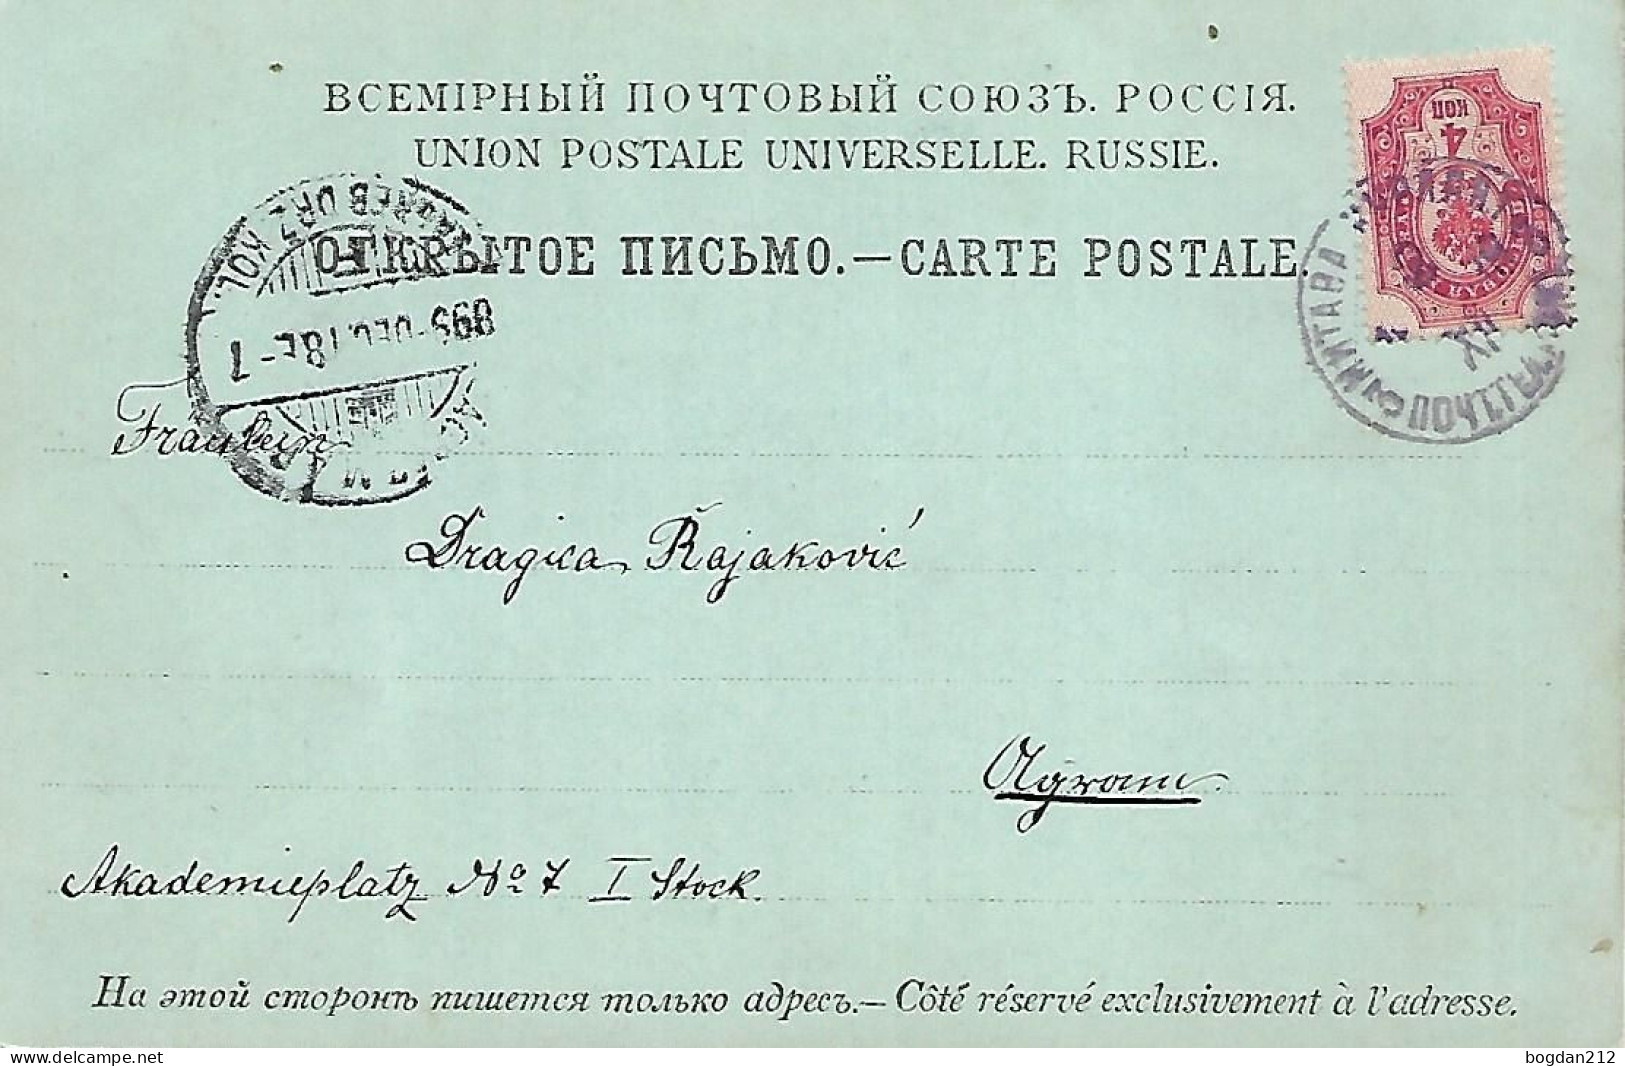 ВСЕМІРНЫЙ ПОЧТОВЫЙ СОЮЗЪ. РОССІЯ.
UNION POSTALE UNIVERSELLE. RUSSIE.
ОТКРЫТОЕ ПИСЬМО.—CARTE POSTALE.
4
КОП
МИТАВА
ПОЧТ.
XII
895-DEC.18E-7
Fräulein
Dragica Rajaković
Agram
Akademieplatz No 7 I Stock.
На этой сторонѣ пишется только адресъ.—Côté réservé exclusivement à l'adresse.
delcampe.net
bogdan212